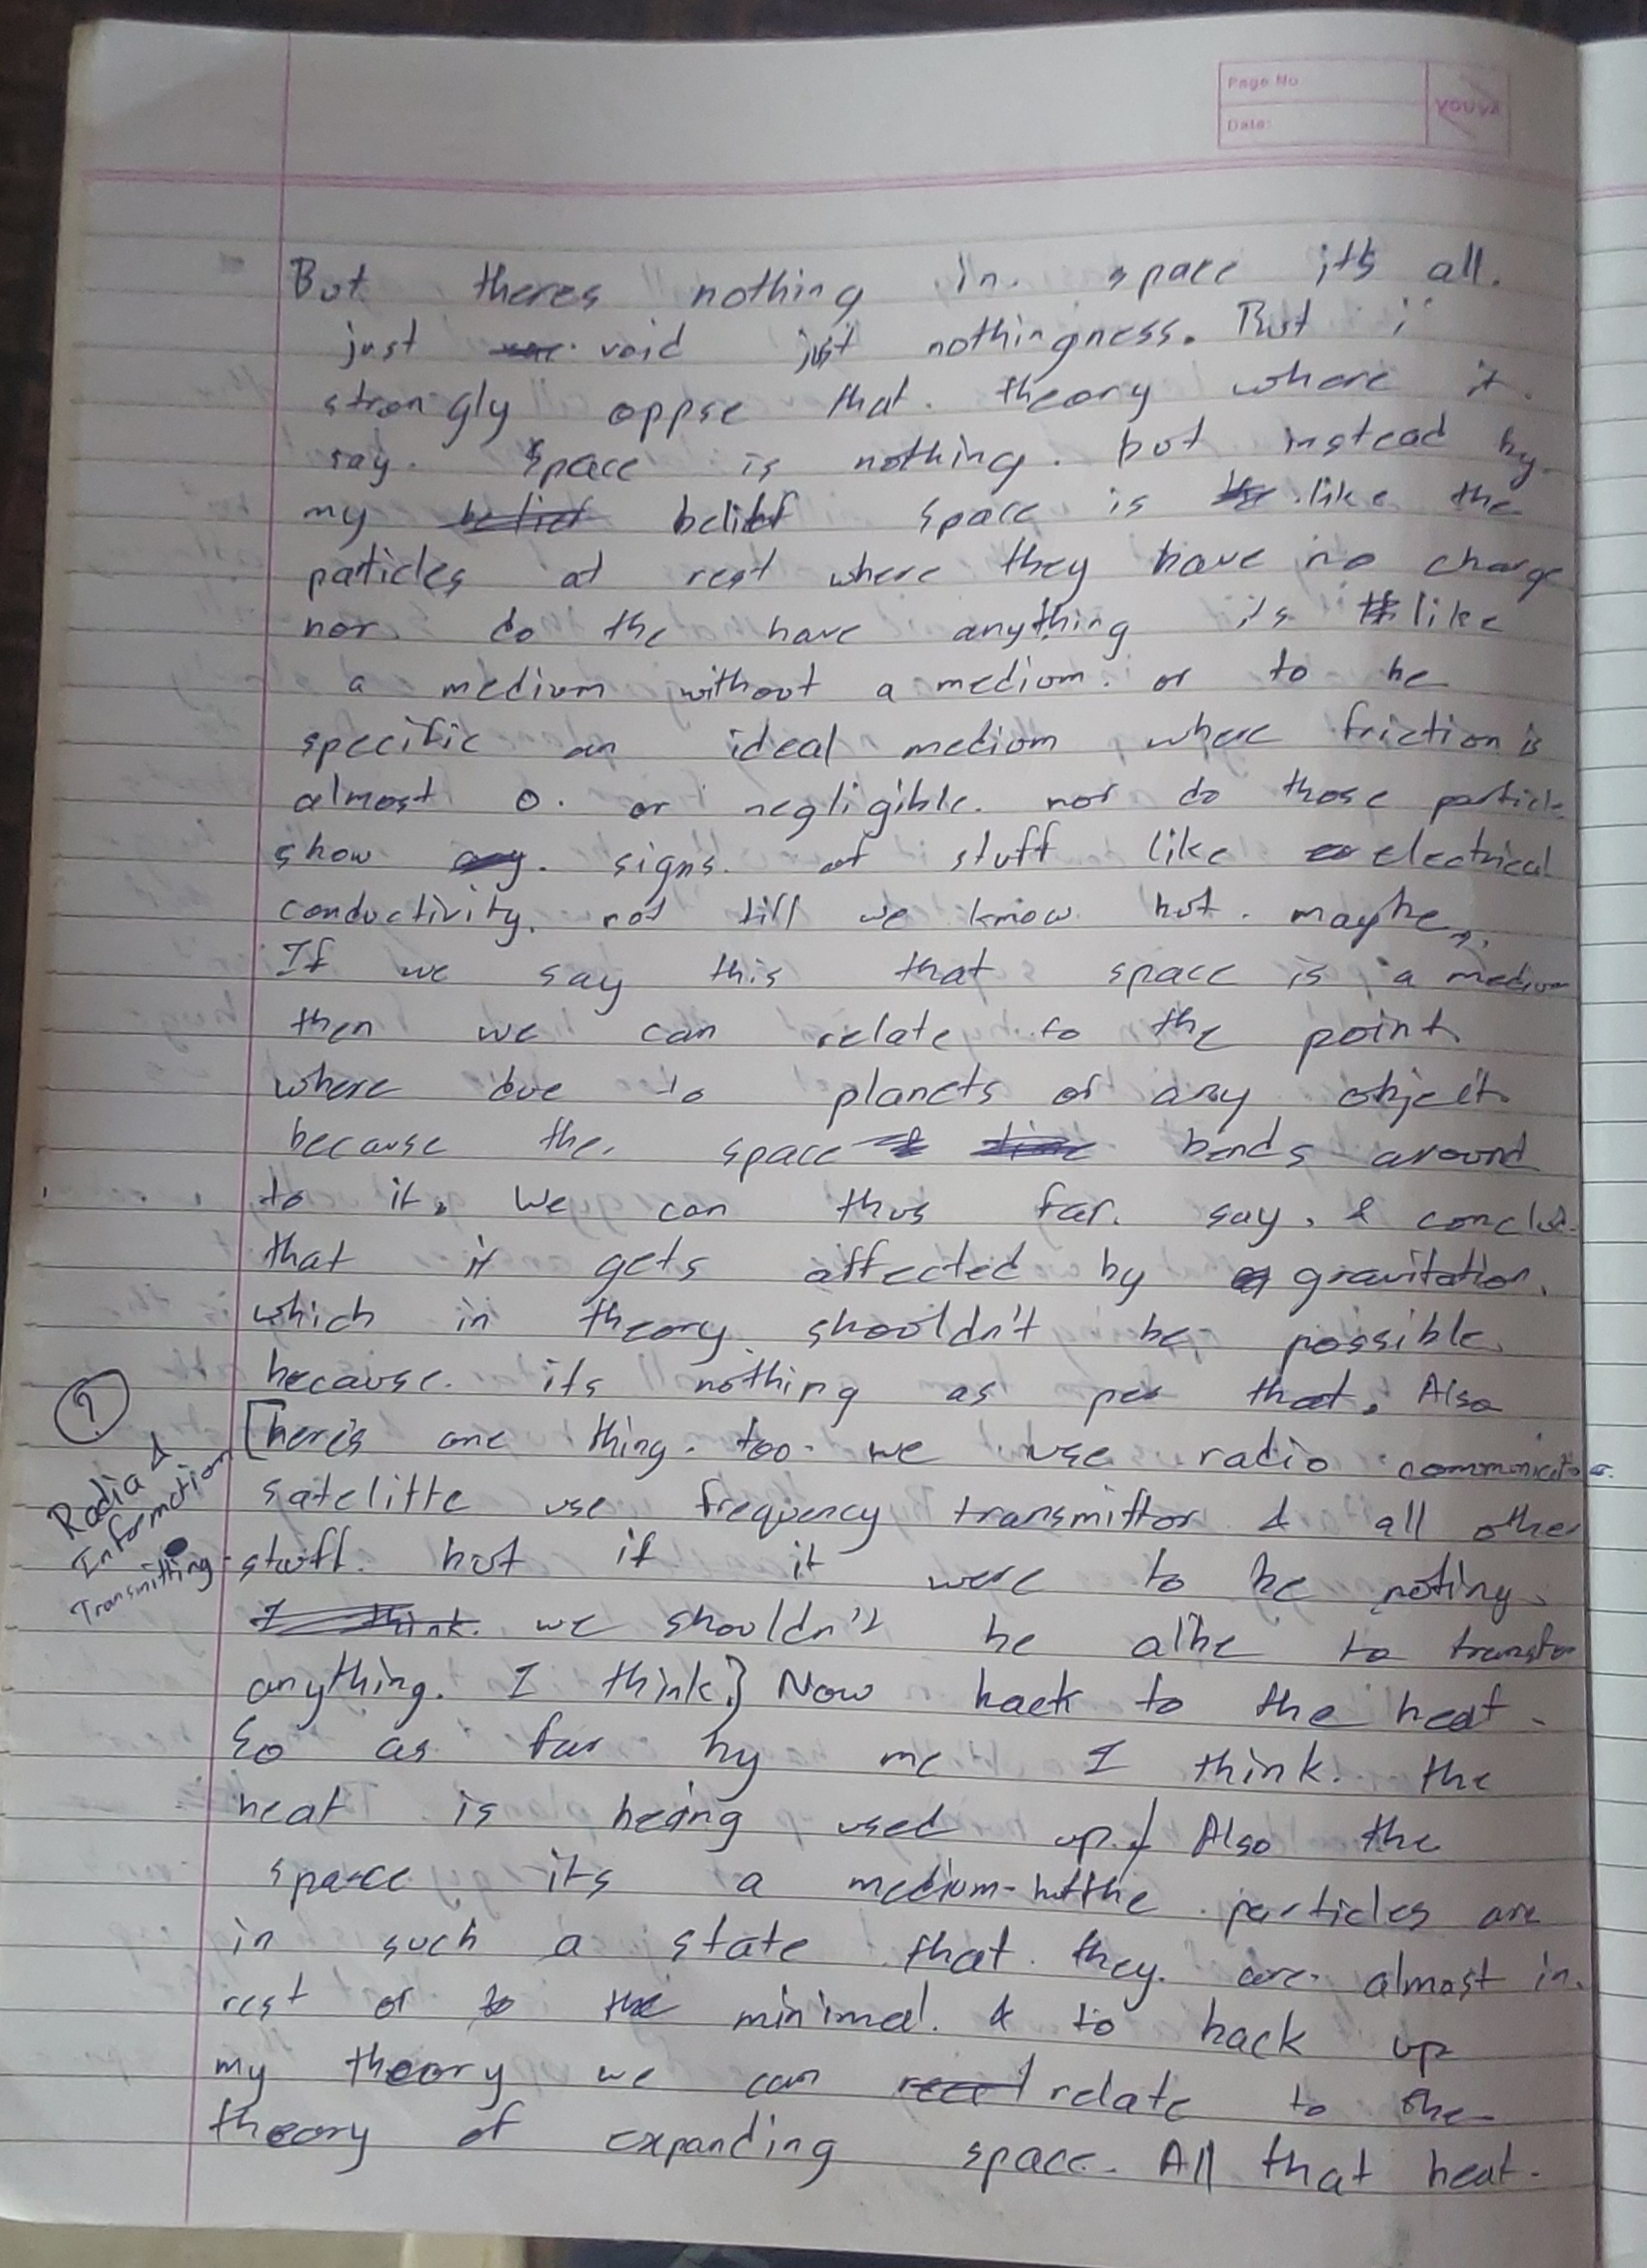 Page No
Date:
YOUVA
But theres nothing in. space it's all.
just void just nothingness. But i
strongly oppse that. theory where it.
say. space is nothing. but instead by
my belief belief space is like the
particles at rest where they have no charge
nor do the have anything its like
a medium without a medium. or to be
specific an ideal medium where friction is
almost 0. or negligible. nor do those particle
show any. signs. of stuff like electrical
conductivity. not till we know but. maybe
If we say this that space is a medium
then we can relate to the point
where due to planets or any object
because the, space & time bends around
to it, We can thus far. say, & conclud
that it gets affected by gravitation.
which in theory shouldn't be possible.
because. its nothing as per that. Also
?
Radia &
Information
Transmitting
[here's one thing. too. we use radio communicatio
satelitte use frequency transmittor & all other
stuff. but if it were to be noting.
I think. we shouldn't be albe to transfer
anything. I think] Now back to the heat.
So as far by me I think. the
heat is being used up. Also the
space its a medium-but the particles are
in such a state that. they. are. almost in.
rest or to the minimal. & to back up
my theory we can relate to the
theory of expanding space. All that heat.